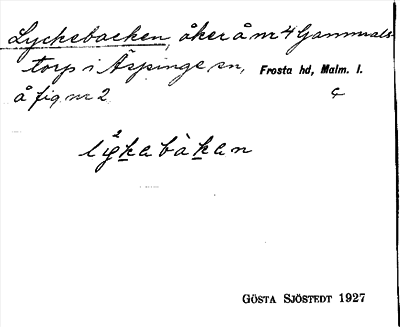 Lyckebacken, åker å nr 4 Gammals-
torp i Äspinge sn, Frosta hd, Malm. l.
å fig nr 2
lykebàken
GÖSTA SJÖSTEDT 1927